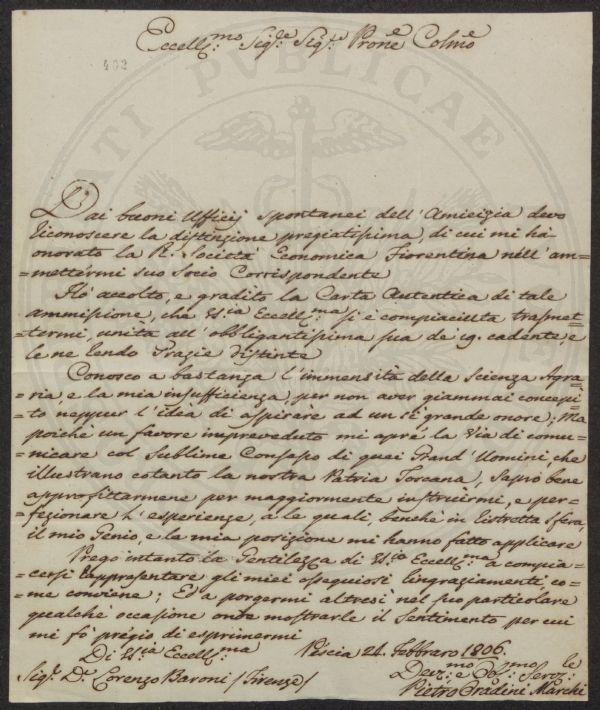 Eccell:mo Sig:re Sig:re Prone Colmo
402
Dai buoni Ufficij spontanei dell'Amicizia devo
riconoscere la distinzione pregiatissima, di cui mi ha
onorato la R. Società Economica Fiorentina nell'am=
=mettermi suo Socio Corrispondente
Hò accolto, e gradito la Carta Autentica di tale
ammissione, che VS:ia Eccell:ma si è compiaciuta trasmet=
termi, unita all'obbligantissima sua de' 19. cadente, e
le ne rendo Grazie distinte
Conosco a bastanza l'immensità della Scienza Agra=
=ria, e la mia insufficienza, per non aver giammai concepi=
to neppur l'idea di aspirare ad un sì grande onore; Ma
poichè un favore impreveduto mi apre la Via di comu=
=nicare col Sublime Consesso di quei Grand'Uomini, che
illustrano cotanto la nostra Patria Toscana, saprò bene
approfittarmene per maggiormente instruirmi, e per=
=fezionare l'esperienze, a le quali, benchè in ristretta sfera,
il mio Genio, e la mia posizione mi hanno fatto applicare
Prego intanto la Gentilezza di VS:ia Eccell:ma a compia=
=cersi rappresentare gli miei ossequiosi ringraziamenti, co=
=me conviene; Ed a porgermi altresì nel suo particolare
qualche occasione onde mostrarle il Sentimento per cui
mi fò pregio di esprimermi
Di VS:ia Eccell:ma Pescia 21. Febbraro 1806.
Devz:mo e Obl:mo Servz:le
Sig:r D:r Lorenzo Baroni /Firenze/ Pietro Pradini Marchi
ATI PVBLICAE